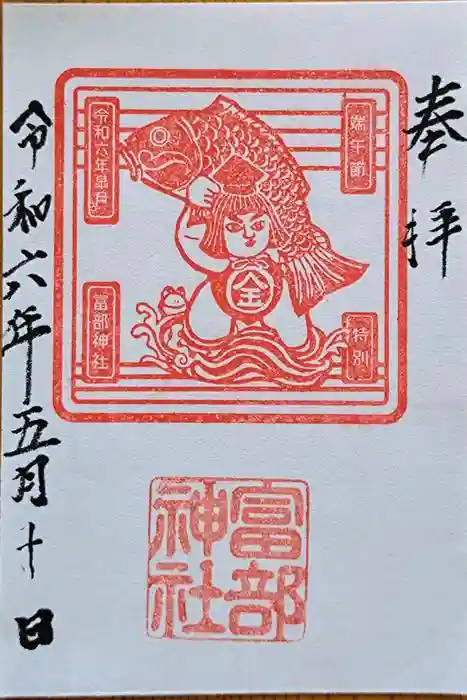 奉拝
端午節
特別
令和六年皐月
富部神社
金
富部神社
令和六年五月十日